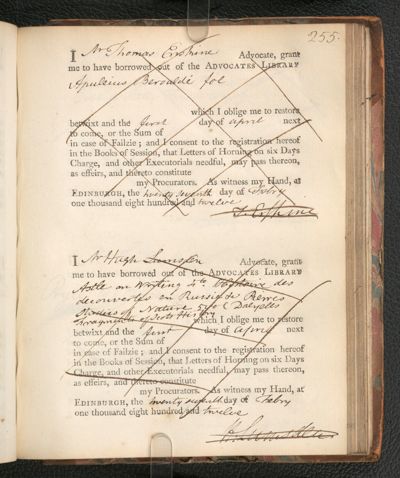 255.
I Mr Thomas Erskine Advocate, grant
me to have borrowed out of the ADVOCATES LIBRARY
Apuleius Beroaldi fol
which I oblige me to restore
betwixt and the first day of april next
to come, or the Sum of
in case of Failzie; and I consent to the registration hereof
in the Books of Session, that Letters of Horning on six Days
Charge, and other Executorials needful, may pass thereon,
as effeirs, and thereto constitute
my Procurators. As witness my Hand, at
EDINBURGH, the twenty seventh day of Febry
one thousand eight hundred and twelve
T. Erskine
I Mr Hugh Lumsden Advocate, grant
me to have borrowed out of the ADVOCATES LIBRARY
Astle on Writing 4to Histoire des
decouvertes en Russie
of Nature Dalyells
Fragments of Scots History
which I oblige me to restore
betwixt and the first day of april next
to come, or the Sum of
in case of Failzie; and I consent to the registration hereof
in the Books of Session, that Letters of Horning on six Days
Charge, and other Executorials needful, may pass thereon,
as effeirs, and thereto constitute
my Procurators. As witness my Hand, at
EDINBURGH, the twenty seventh day of Febry
one thousand eight hundred and twelve
H Lumsden